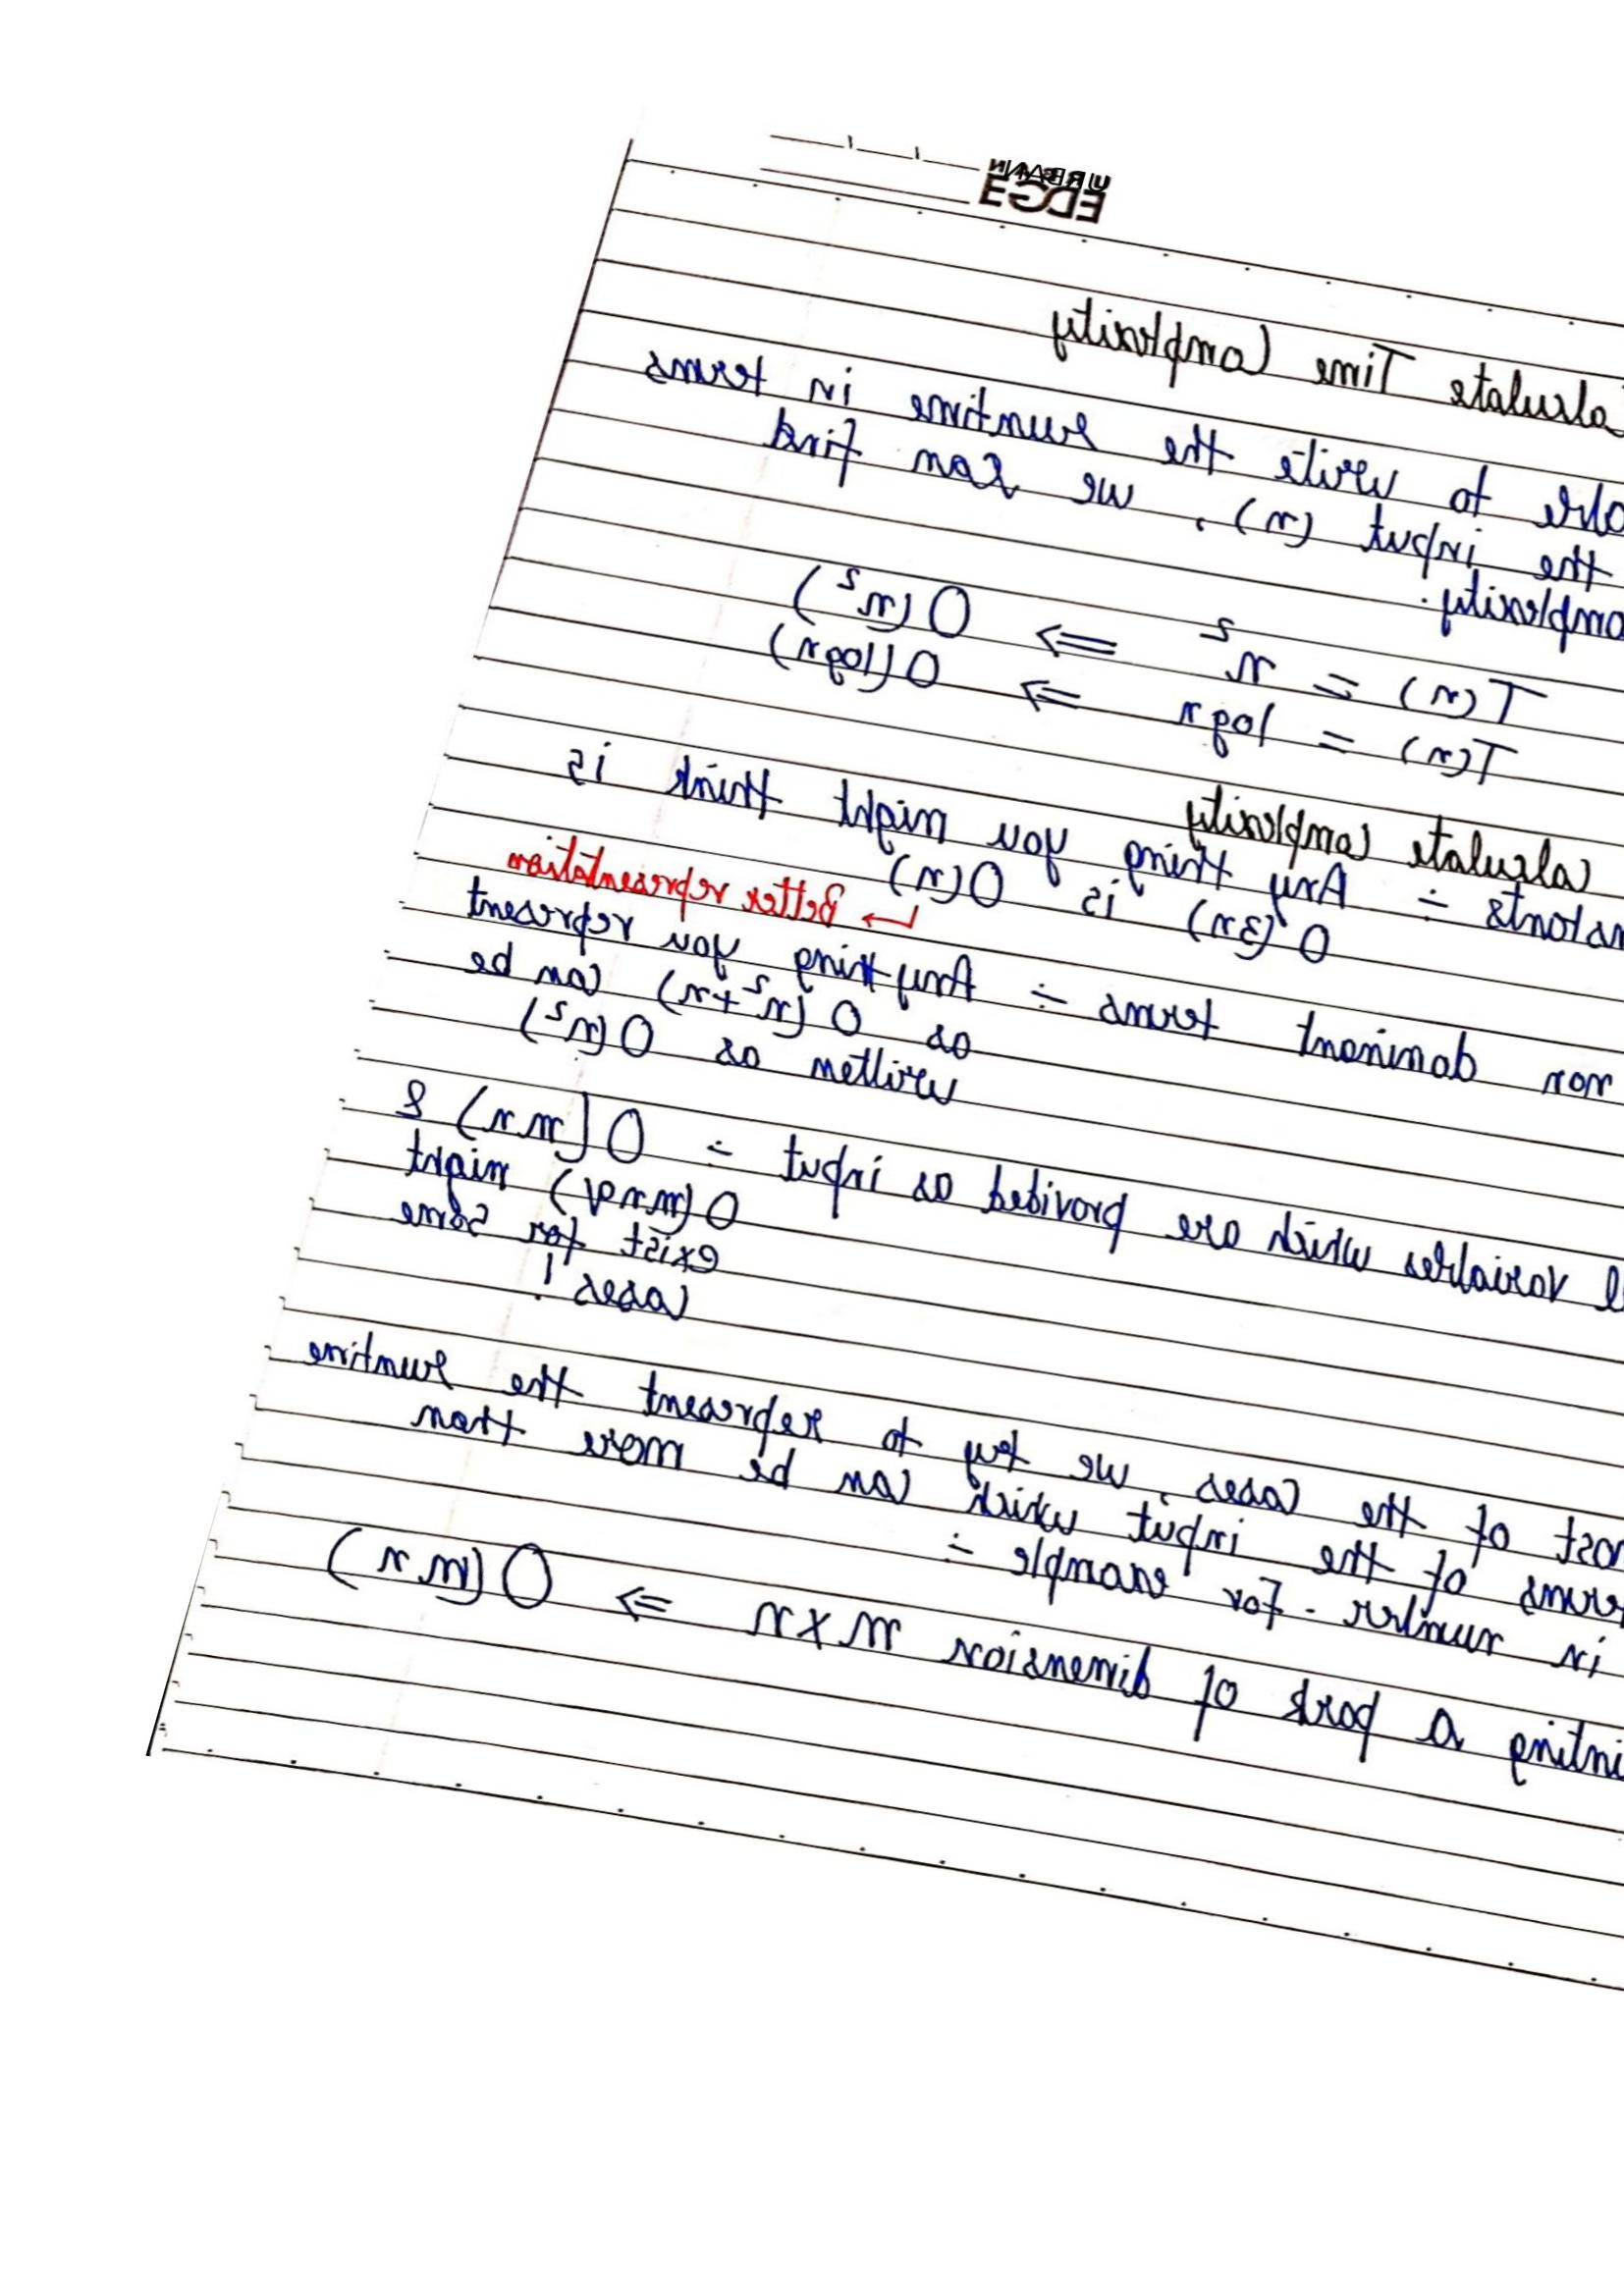 URBAN
EDGE
alculate Time Complexity
able to write the runtime in terms
the input (n), we can find
omplexity.
T(n) = n² ⇒ O(n²)
T(n) = logn ⇒ O(logn)
calculate complexity
nstants ÷ Any thing you might think is
O(3n) is O(n)
↳ Better representation
non dominant terms ÷ Anything you represent
as O(n²+n) can be
written as O(n²)
l variables which are provided as input ÷ O(mn) &
O(mnq) might
exist for some
cases!
ost of the cases we try to represent the runtime
erms of the input which can be more than
in number. For example ÷
inting a park of dimension m×n ⇒ O(mn)